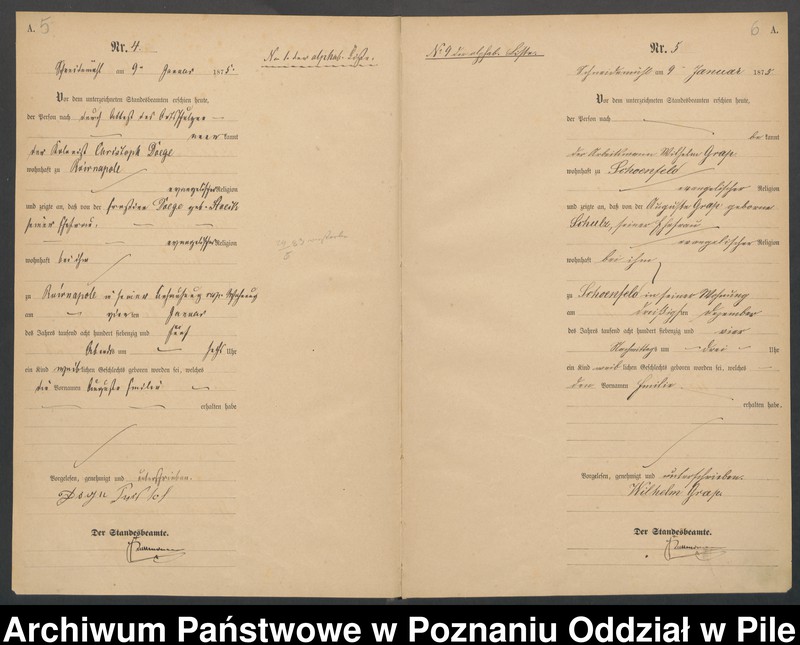 A. 5
Nr. 4
am 9ten Januar 1875.
Vor dem unterzeichneten Standesbeamten erschien heute,
der Person nach durch Attest des
kannt
der Christoph
wohnhaft zu
evangelischer Religion
und zeigte an, daß von der geb.
seiner Ehefrau
evangelischer Religion
wohnhaft bei ihm
zu in seiner
am ten Januar
des Jahres tausend acht hundert siebenzig und fünf
Abends um Uhr
ein Kind weiblichen Geschlechts geboren worden sei, welches
die Vornamen Auguste Emilie
erhalten habe
Vorgelesen, genehmigt und unterschrieben.
Der Standesbeamte.
No 1. der alphab. Liste.
No 4 der alphab. Liste.
6 A.
Nr. 5
Schneidemühl am 9ten Januar 1875.
Vor dem unterzeichneten Standesbeamten erschien heute,
der Person nach
be kannt
der Arbeitsmann Wilhelm Grap
wohnhaft zu Schoenfeld
evangelischer Religion
und zeigte an, daß von der Auguste Grap geborene
Schulz, seiner Ehefrau
evangelischer Religion
wohnhaft bei ihm
zu Schoenfeld in seiner Wohnung
am dreißigsten Dezember
des Jahres tausend acht hundert siebenzig und vier
Nachmittags um drei Uhr
ein Kind weiblichen Geschlechts geboren worden sei, welches
den Vornamen Emilie
erhalten habe.
Vorgelesen, genehmigt und unterschrieben.
Wilhelm Grap.
Der Standesbeamte.
Archiwum Państwowe w Poznaniu Oddział w Pile